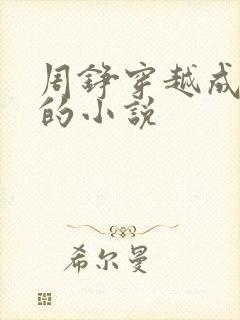 周铮穿越成
的小说
希尔曼